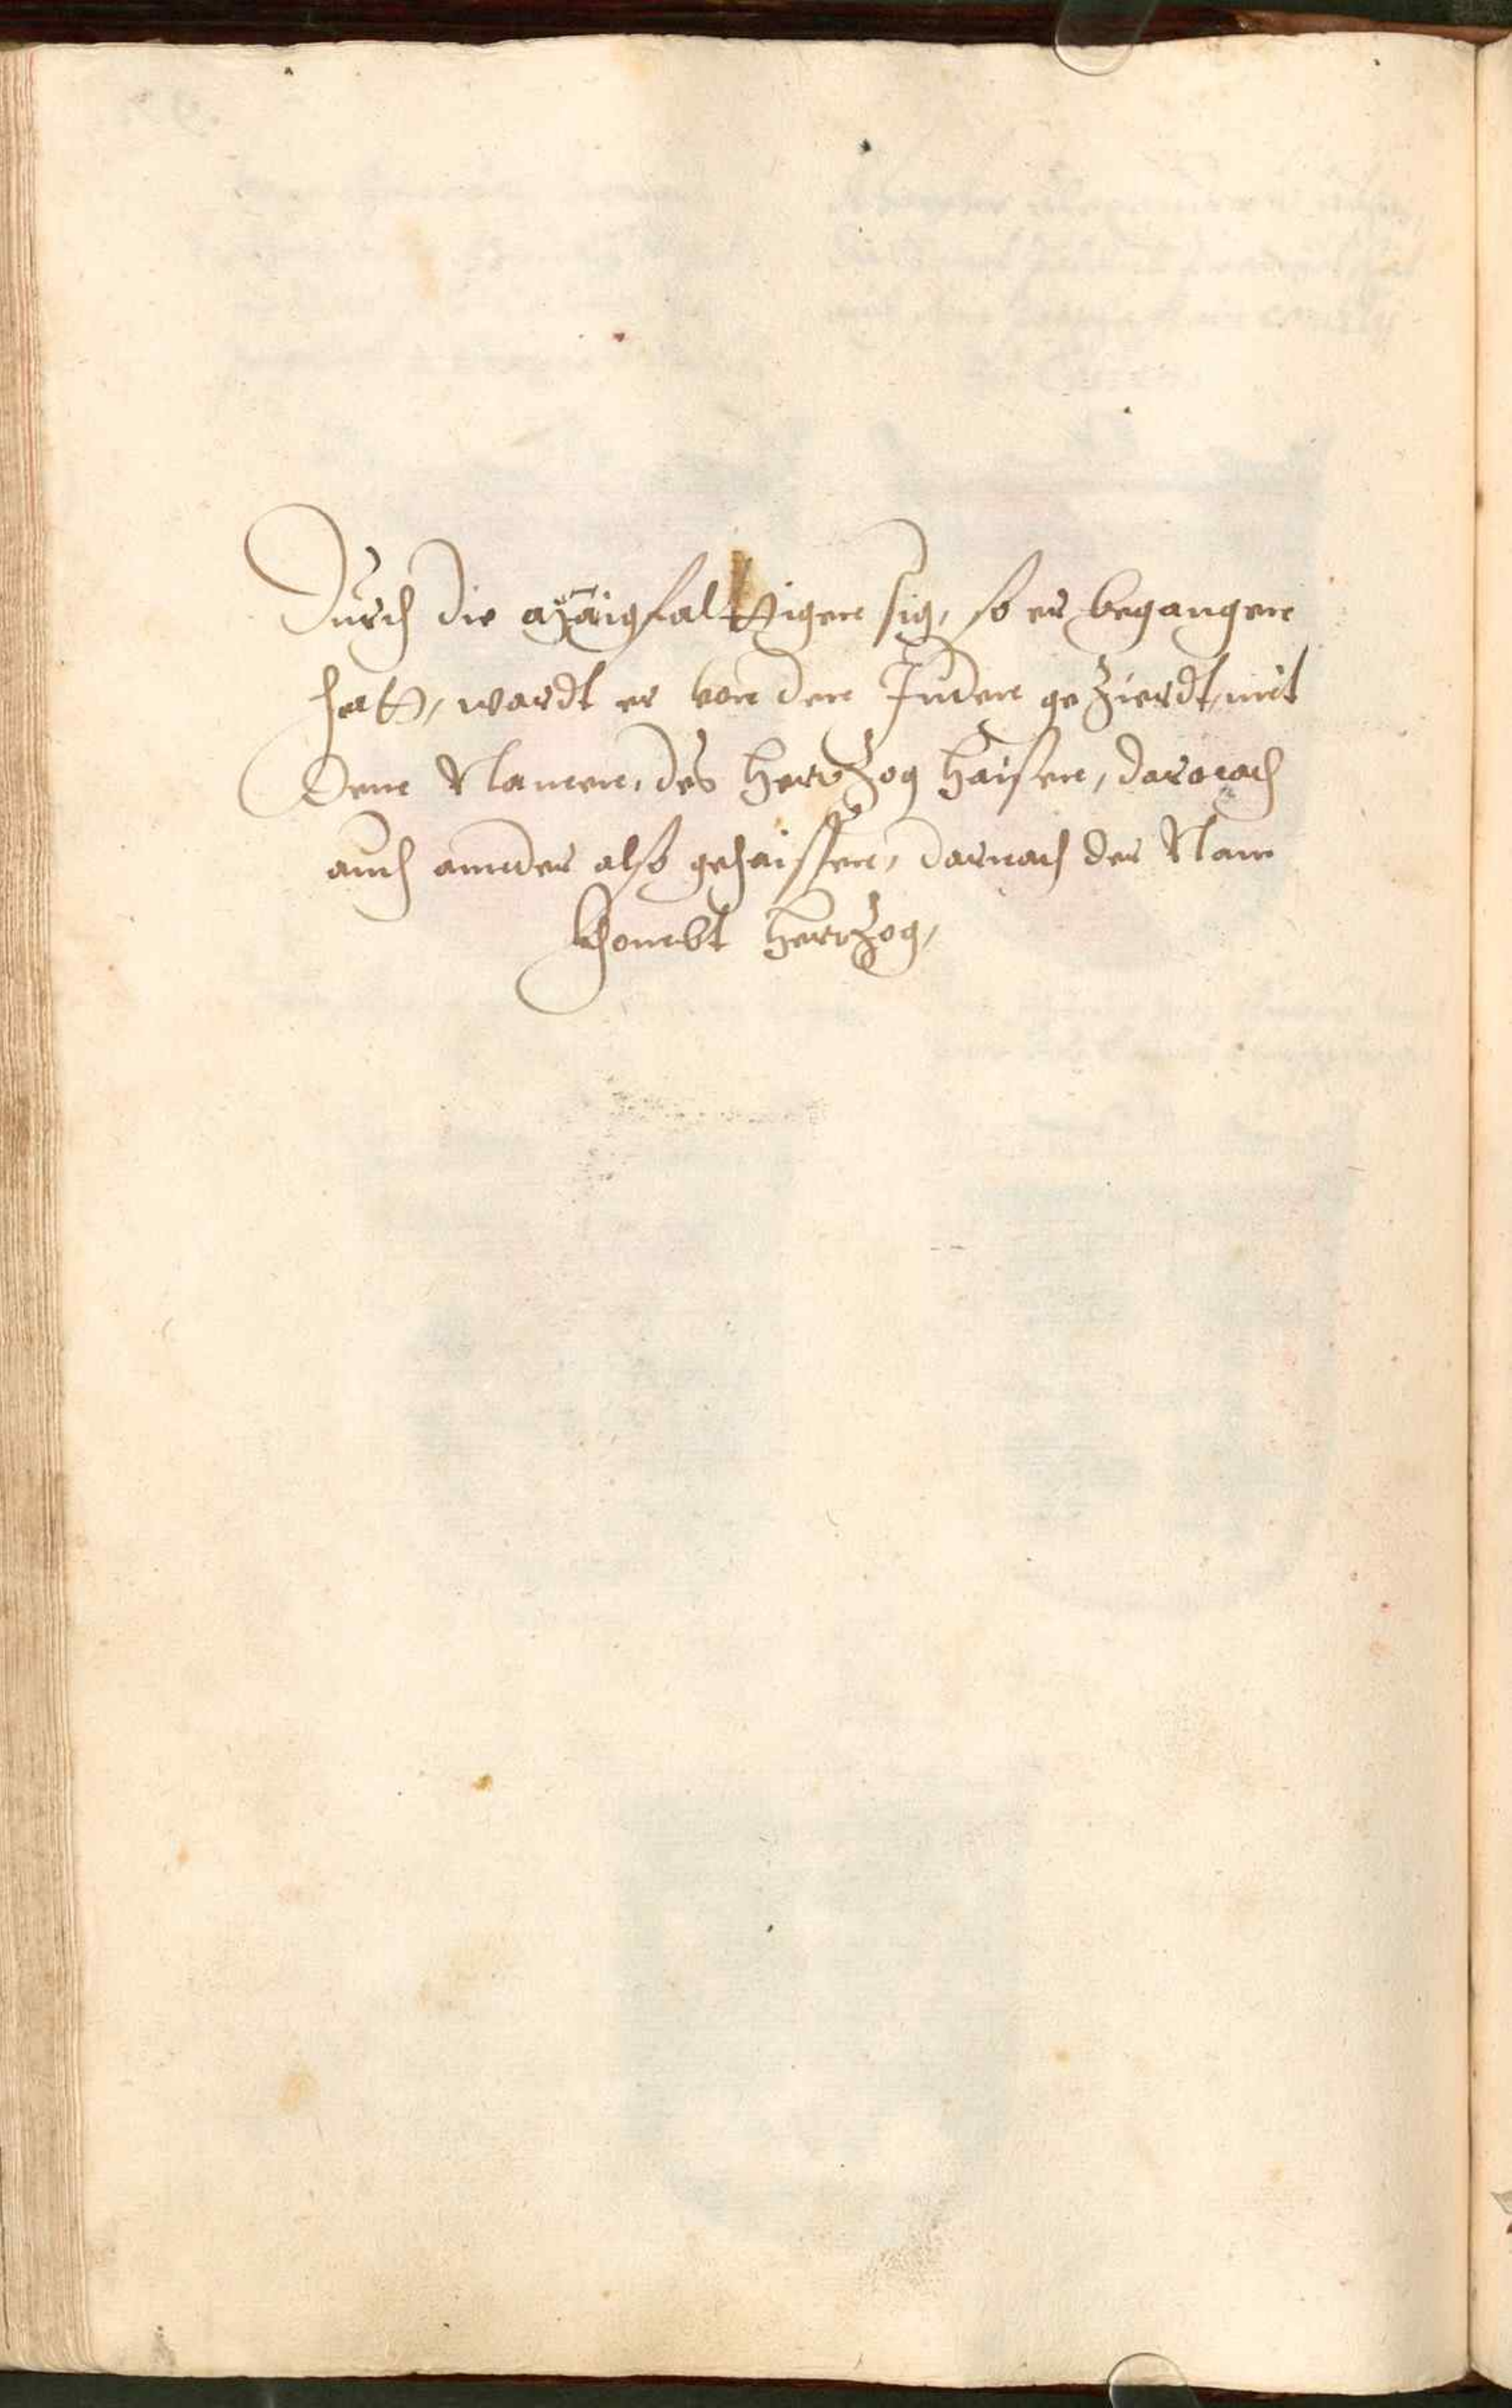 Durch die manigfalttigen sig, so er begangen
hatt, wardt er von den Juden geZierdt, mit
Dem Namen, des HertZog haisen, darnach
auch annder also gehaissen, darnach der Nam
khombt HertZog,